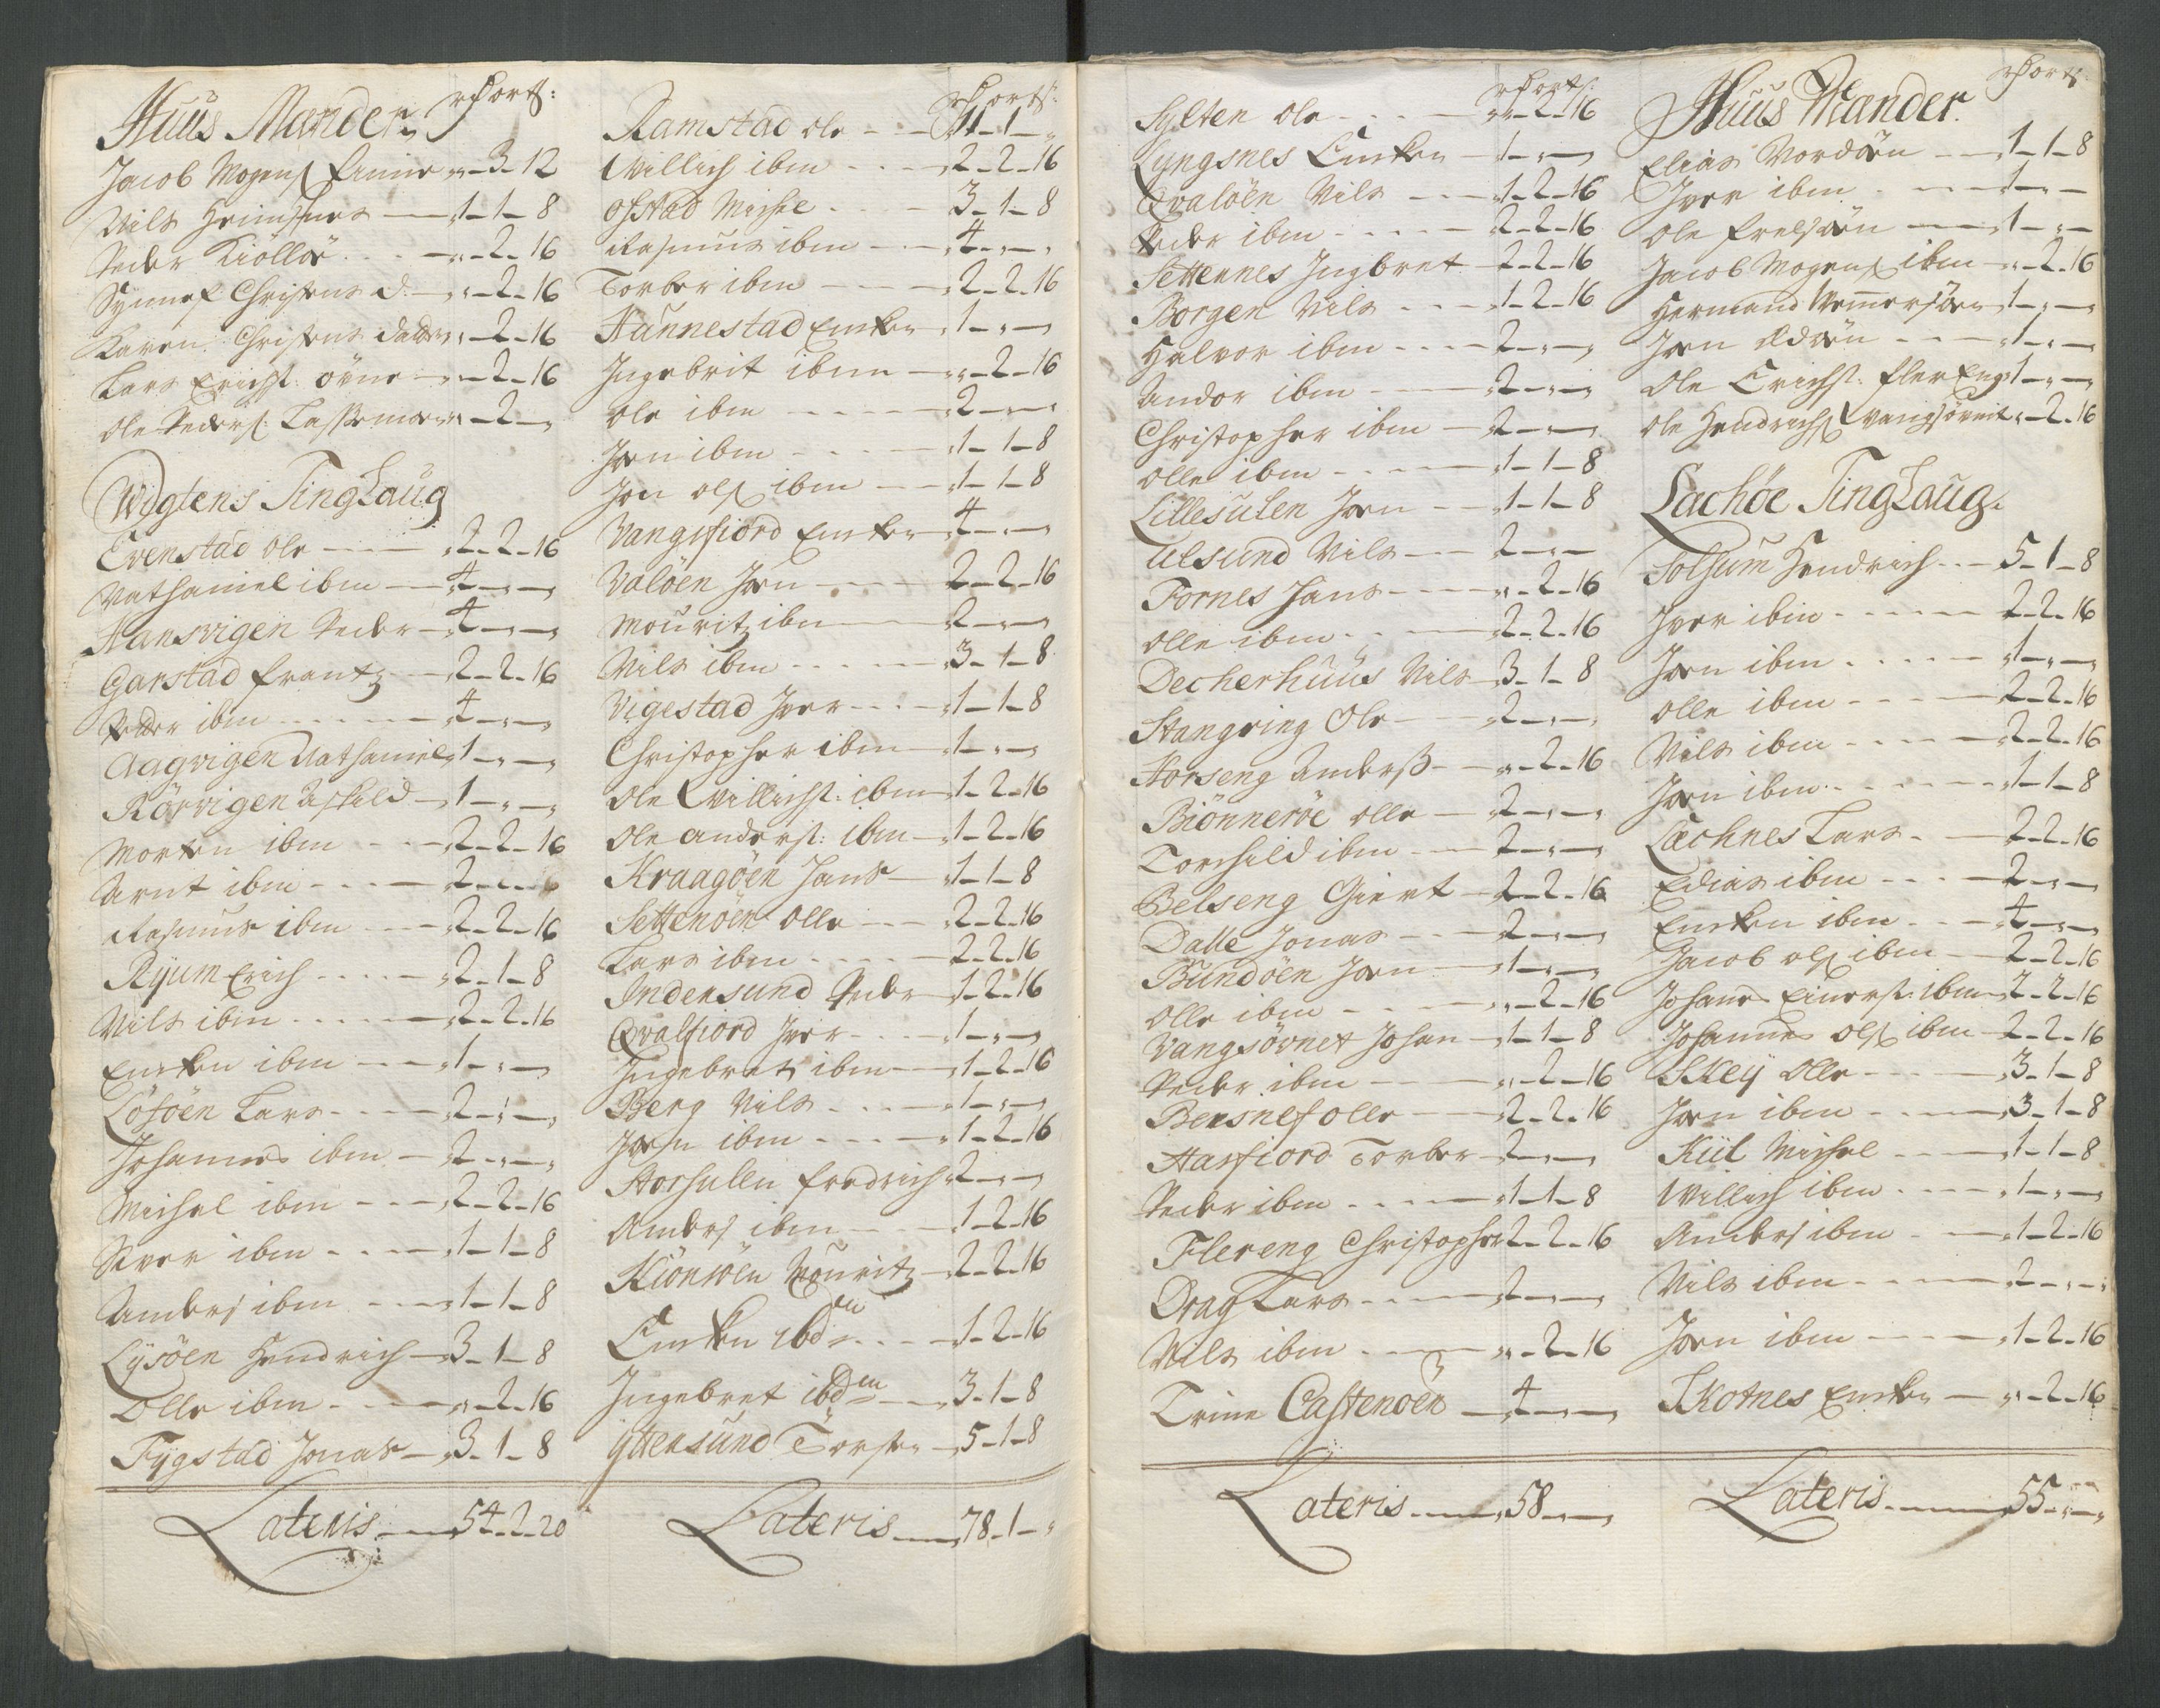 Huus Mander
Jacob Mogens Finne „-3-12
Nils Heimsnes 1-1-8
Peder Kiölsöe „-2-16
Synnef Christens d. „-2-16
Karen Christens daatter „-2-16
Lars Erichs: övne „-2-16
Ole Peders: „-2-„
Wigtens TingLaug
Evenstad Ole 2-2-16
Nathaniel ibm 4-„-„
Hansvigen Peder 4-„-„
Garstad Frantz 2-2-16
Peder ibm 4-„-„
Aagvigen Nathaniel 1-„-„
Rörvigen Askild 1-„-„
Morten ibm 2-2-16
Arnt ibm
Rasmus ibm 2-2-16
Ryum Erich 2-1-8
Nils ibm 2-2-16
Encken ibm 1-„-„
Löföen Lars 2-„-„
Johannes ibm 2-„-„
Michel ibm 2-2-16
Siver ibm 1-1-8
Anders ibm 1-1-8
Lysöen Hendrich 3-1-8
Olle ibm „-2-16
Fygstad Jonas 3-1-8
Lateris 54-2-20
Ramstad Ole
Willich ibm 2-2-16
Ofstad Michel 3-1-8
Rasmus ibm 4-„-„
Torber ibm 2-2-16
Hannestad Encken 1-„-„
Ingebrit ibm „-2-16
Ole ibm 2-„-„
Jon ibm 1-1-8
Jon Ols ibm 1-1-8
Vangsfiord Encken 4-„-„
Valöen Jon 2-2-16
Mouritz ibm 2-„-„
Nils ibm 3-1-8
Vigestad Iver 1-1-8
Christopher ibm 1-„-„
Ole Willichs: ibm 1-2-16
Ole Anders: ibm 1-2-16
Kraagöen Hans 1-1-8
Settenöen Olle 2-2-16
Lars ibm 2-2-16
Indensund Peder 1-2-16
Qvalfiord Iver 1-„-„
Ingebret ibm 1-2-16
Berg Nils 1-„-„
Jon ibm 1-2-16
Horsullen Fredrich 2-„-„
Anders ibm 1-2-16
Skionsöen Mouritz 2-2-16
Encken ibdem 1-2-16
Ingebret ibdem 3-1-8
Yttensund Torsten 5-1-8
Lateris 78-1-„
Sylten Ole „-2-16
Lyngsnes Encken 1-„-„
Qvalöen Nils 1-2-16
Peder ibm 2-2-16
Settennes Ingbret 2-2-16
Borgen Nils 1-2-16
Halvor ibm 2-„-„
Andor ibm 2-„-„
Christopher ibm 2-„-„
Olle ibm 1-1-8
Lillesulen Jon 1-1-8
Ulsund Nils 2-„-„
Fornes Hans „-2-16
Olle ibm 2-2-16
Decherhuus Nils 3-1-8
Stangring Ole 2-„-„
Horseng Anders „-2-16
Biönneröe Olle 2-„-„
Torchild ibm 2-„-„
Belseng Giert 2-2-16
Dalle Jonas 2-„-„
Bundöen Jon 1-„-„
Olle ibm „-2-16
Vangsövnet Johan 1-1-8
Peder ibm „-2-16
Bensnes Olle 2-2-16
Harfiord Torber 2-„-„
Peder ibm 1-1-8
Flereng Christopher 2-2-16
Drag Lars 2-„-„
Nils ibm „-2-16
Trine Castenoen 4-„-„
Lateris 58-„-„
Huus Mænder
Elias Nordöen 1-1-8
Iver ibm 1-„-„
Ole Frelsöen 1-„-„
Jacob Mogens ibm „-2-16
Hermand Nemmersöen 1-„-„
Jon Odöen 1-„-„
Ole Erichs: Flereng 1-„-„
Ole Hendrichs Vangsövnit „-2-16
Lachöe TingLaug.
Solsum Hendrich 5-1-8
Iver ibm 2-2-16
Jon ibm 1-„-„
Olle ibm 2-2-16
Nils ibm 2-2-16
Jon ibm 1-1-8
Lachnes Lars 2-2-16
Edias ibm 2-„-„
Encken ibm 4-„-„
Jacob Ols ibm 2-2-16
Johans Einers: ibm 2-2-16
Johannes Ols ibm 2-2-16
Skey Olle 3-1-8
Jon ibm 3-1-8
Kiil Michel 1-1-8
Willich ibm 1-„-„
Anders ibm 1-2-16
Nils ibm 2-„-„
Jon ibm 1-2-16
Skotnes Encken „-2-16
Lateris 55-„-„